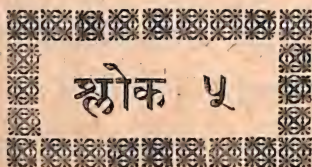 श्लोक ५